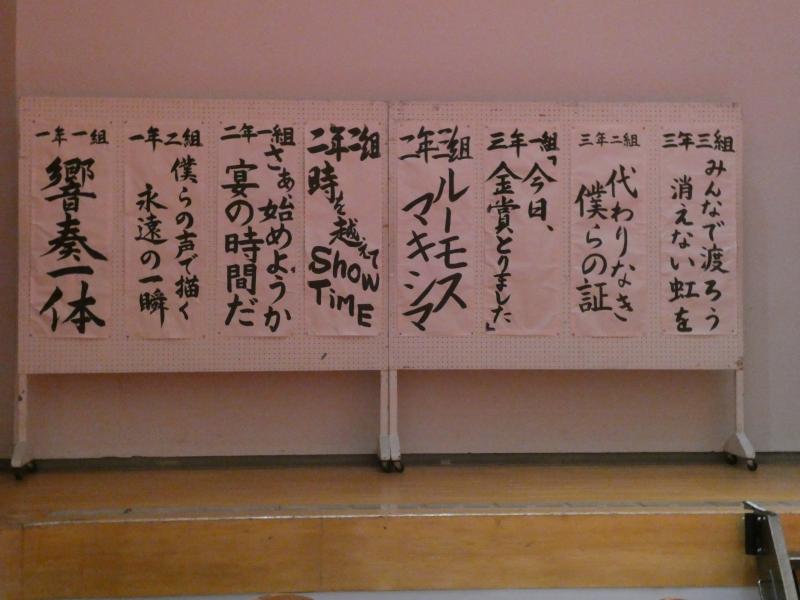 一年一組
響奏一体
一年二組
僕らの声で描く
永遠の一瞬
二年一組
さあ、始めようか
宴の時間だ
二年二組
時を越えて
Show
TiME
二年三組
ルーモス
マキシマ
三年一組
「今日、
金賞とりました」
三年二組
代わりなき
僕らの証
三年三組
みんなで渡ろう
消えない虹を